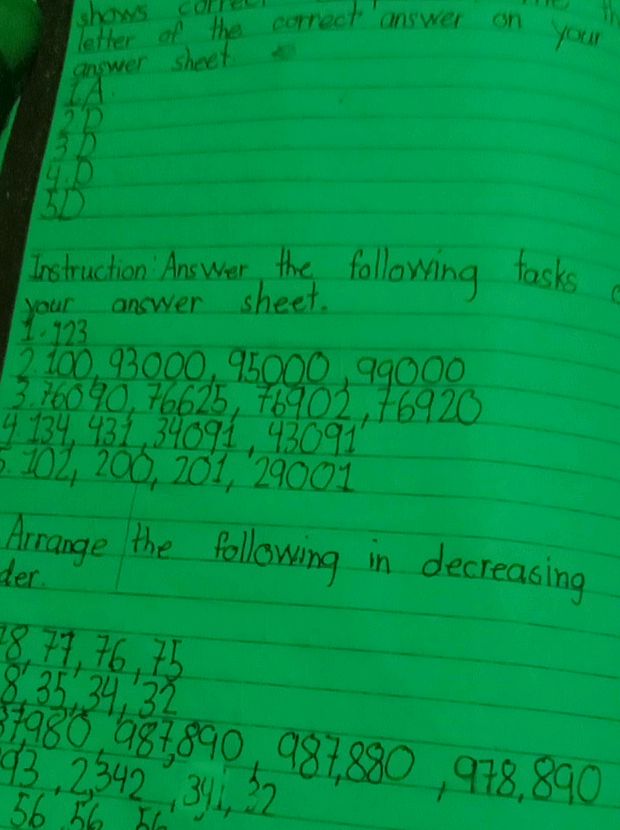 shows correct
letter of the correct answer on your
answer sheet.
1.A
2.D
3.D
4.D
5.D
Instruction: Answer the following tasks
your answer sheet.
1.123
2.100, 93000, 95000, 99000
3.76090, 76625, 76902, 76920
4.134, 431, 34091, 43091
5.102, 200, 201, 29001
Arrange the following in decreasing
der.
78, 77, 76, 75
8, 35, 34, 32
87,980, 987,890, 987,880, 978,890
93, 2,342, 341, 32
56 56 56